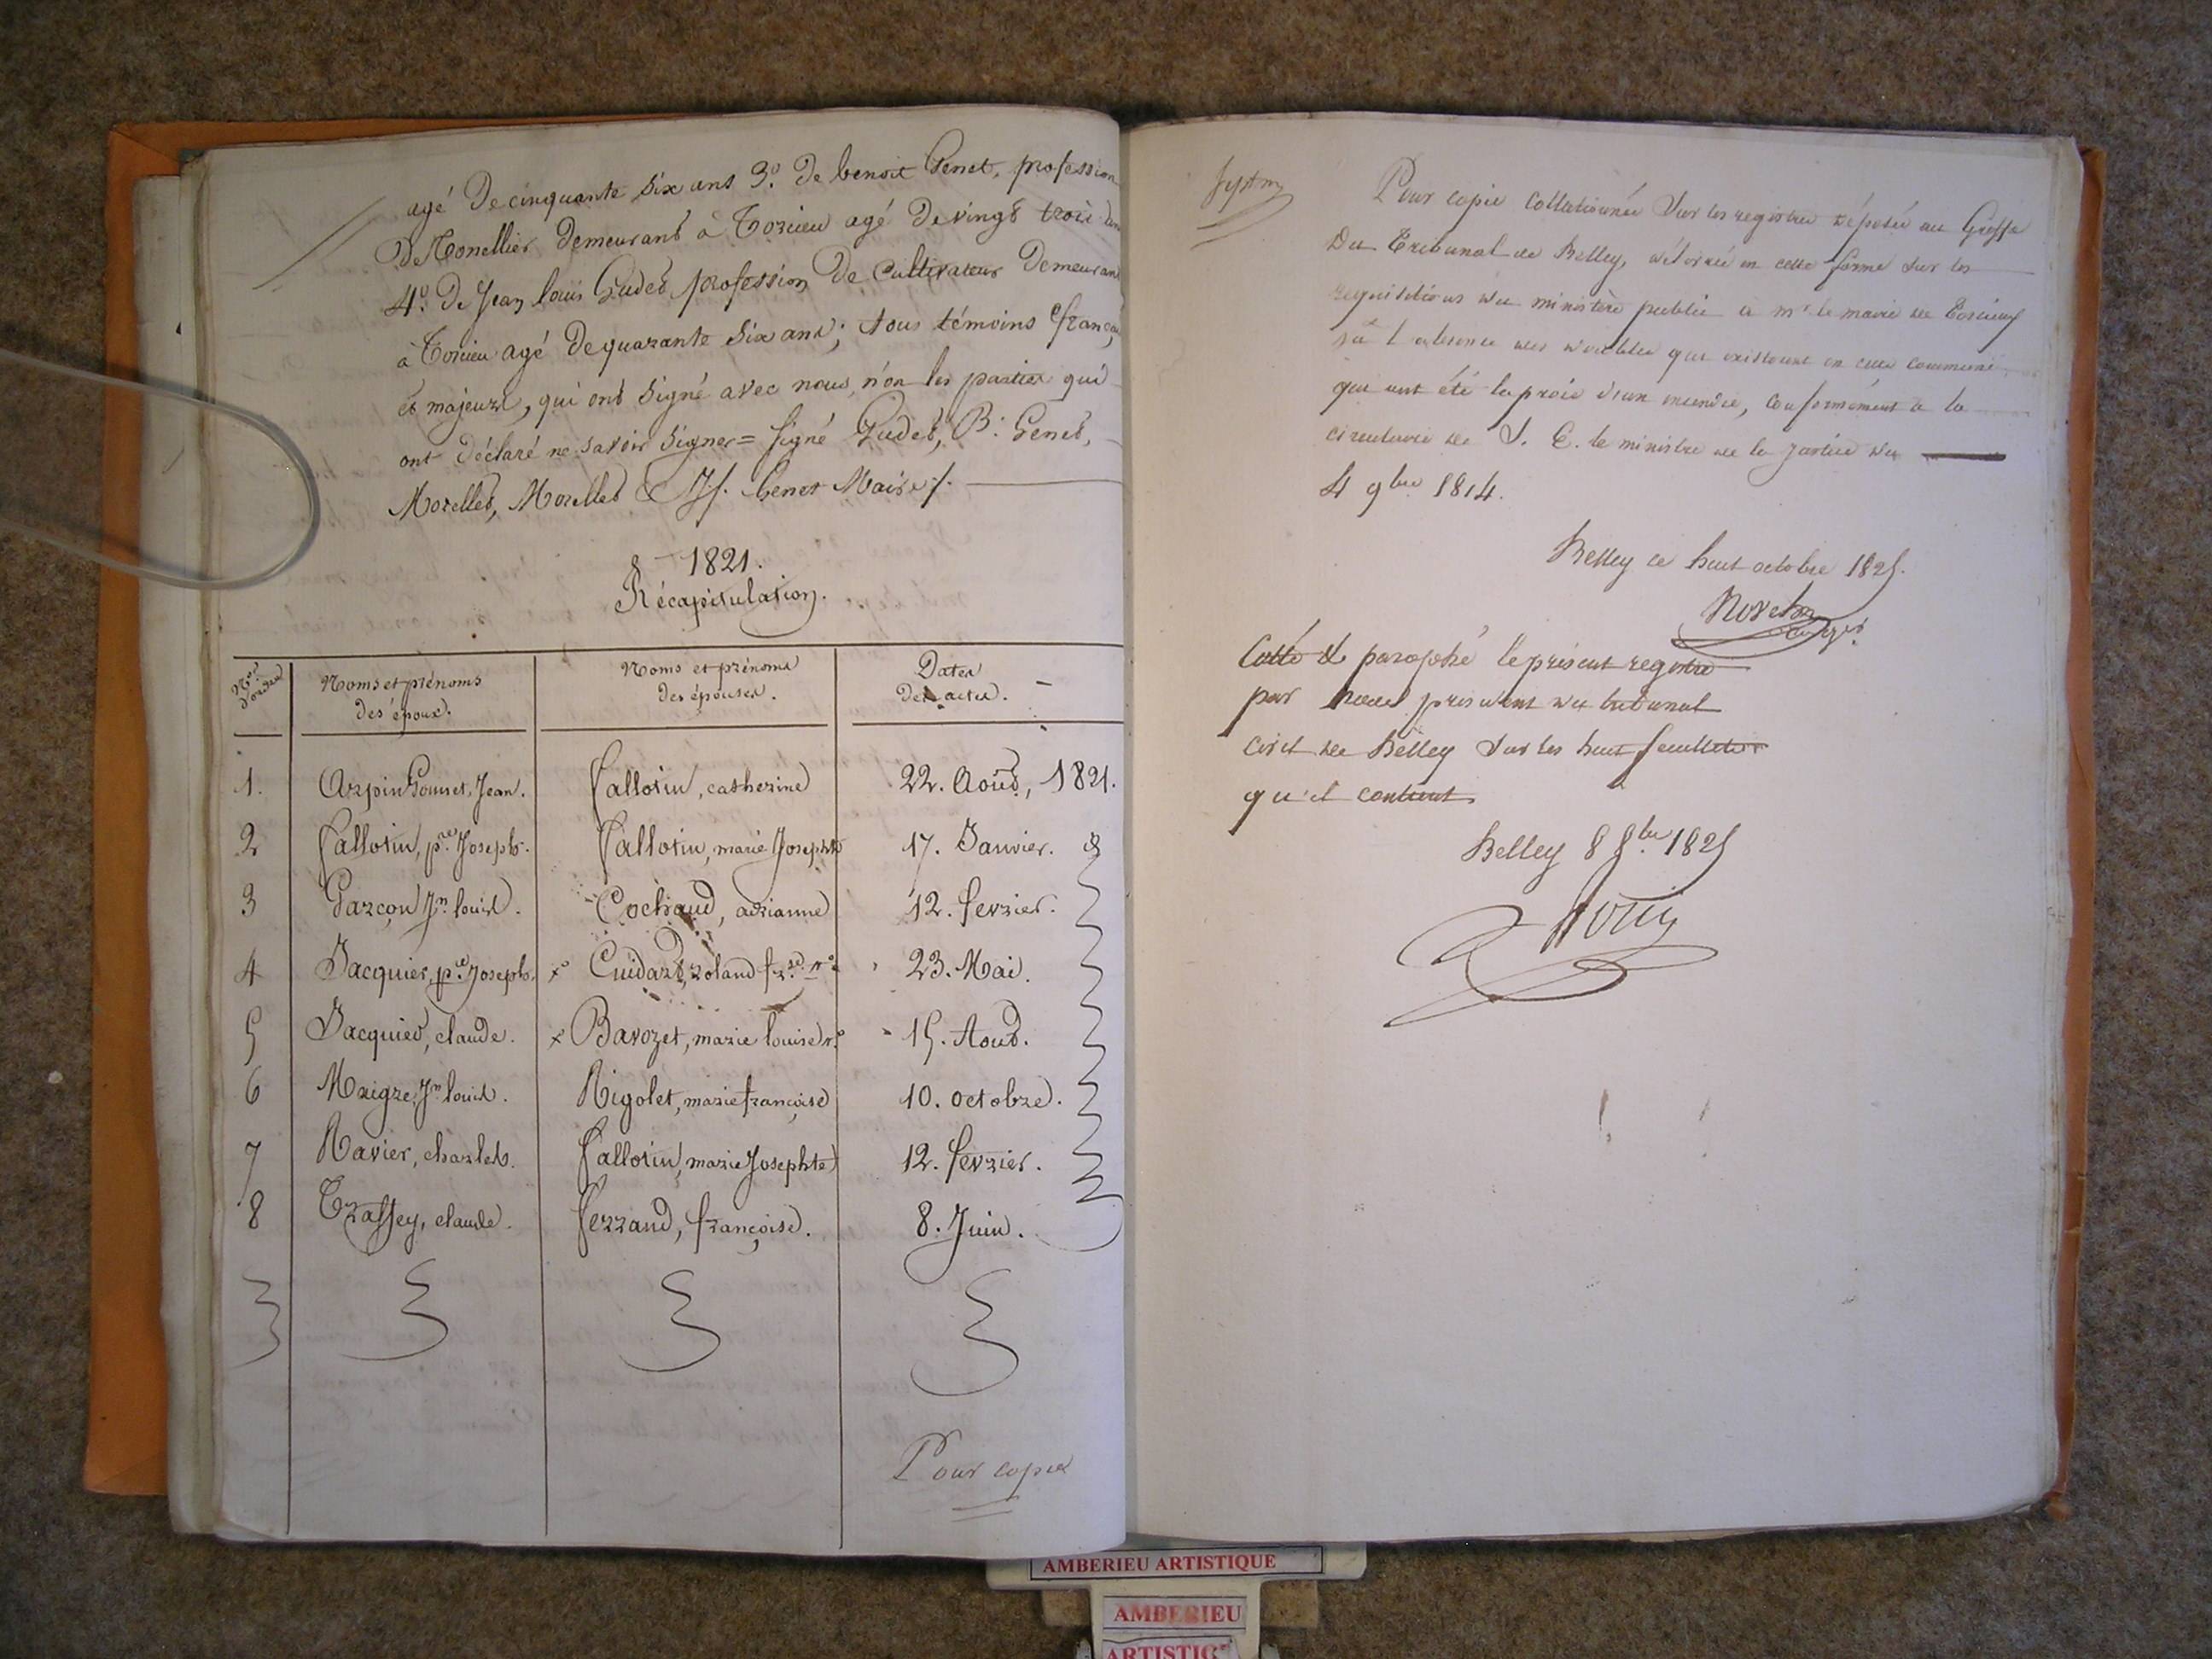 agé De cinquante Six ans 3.º De benoit Genet, profession
De Tonellier Demeurant à Torcieu agé De vingt trois ans
4.º De Jean louis Gudet, profession De Cultivateur Demeurant
à Torcieu agé De quarante Six ans; tous témoins français
et majeurs, qui ont Signé avec nous, non les parties qui
ont Déclaré ne savoir Signer = Signé Gudet, B. Genet,
Morellet, Morellet & Genet Maire /.
1821.
Récapitulation.
Nos d'ordre
Noms et prénoms
des époux.
Noms et prénoms
des épouses.
Dates
des actes.
1. Arpin Gonnet, Jean. fallotin, catherine 22. Août, 1821.
2 fallotin, pre. Joseph. fallotin, marie Josephte 17. Janvier. &
3 Garçon Jn. louis. Cochaud, adrianne 12. fevrier.
4 Jacquier, pre. Joseph. x Cuidard, roland 23. Mai.
5 Jacquier, claude. x Bavozet, marie louise 15. Aout.
6 Maigre, Jn. louis. Rigolet, marie françoise 10. octobre.
7 Ravier, charles. fallotin, marie Josephte 12. fevrier.
8 Trassey, claude. ferrand, françoise. 8. Juin.
Pour copie
Pour copie Collationnée Sur les registres déposés au Greffe
Du Tribunal de Belley, délivrée en cette forme sur les
requisitions du ministère public à mr. le maire de Torcieu
à l'absence des doubles qui existoient en cette commune,
qui ont été la proie d'un incendie, conformément à la
circulaire de S. E. le ministre de la Justice du
4 9bre 1814.
Belley ce huit octobre 1825.
Cotté & paraphé le présent registre
par nous president du tribunal
civil de Belley Sur les huit feuillets
qu'il contient
Belley 8 8bre 1825
AMBERIEU ARTISTIQUE
AMBERIEU